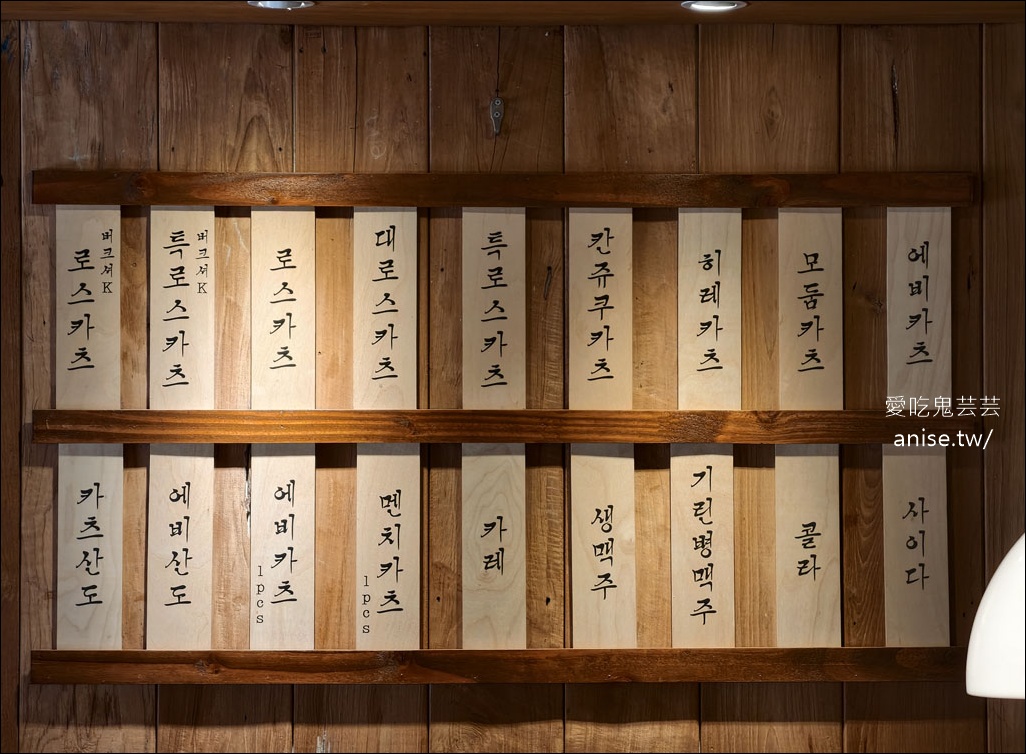 버크셔K
로스카츠
버크셔K
특로스카츠
로스카츠
대로스카츠
특로스카츠
칸쥬쿠카츠
히레카츠
모둠카츠
에비카츠
카츠산도
에비산도
에비카츠
1pcs
멘치카츠
1pcs
카레
생맥주
기린병맥주
콜라
사이다
愛吃鬼芸芸
anise.tw/